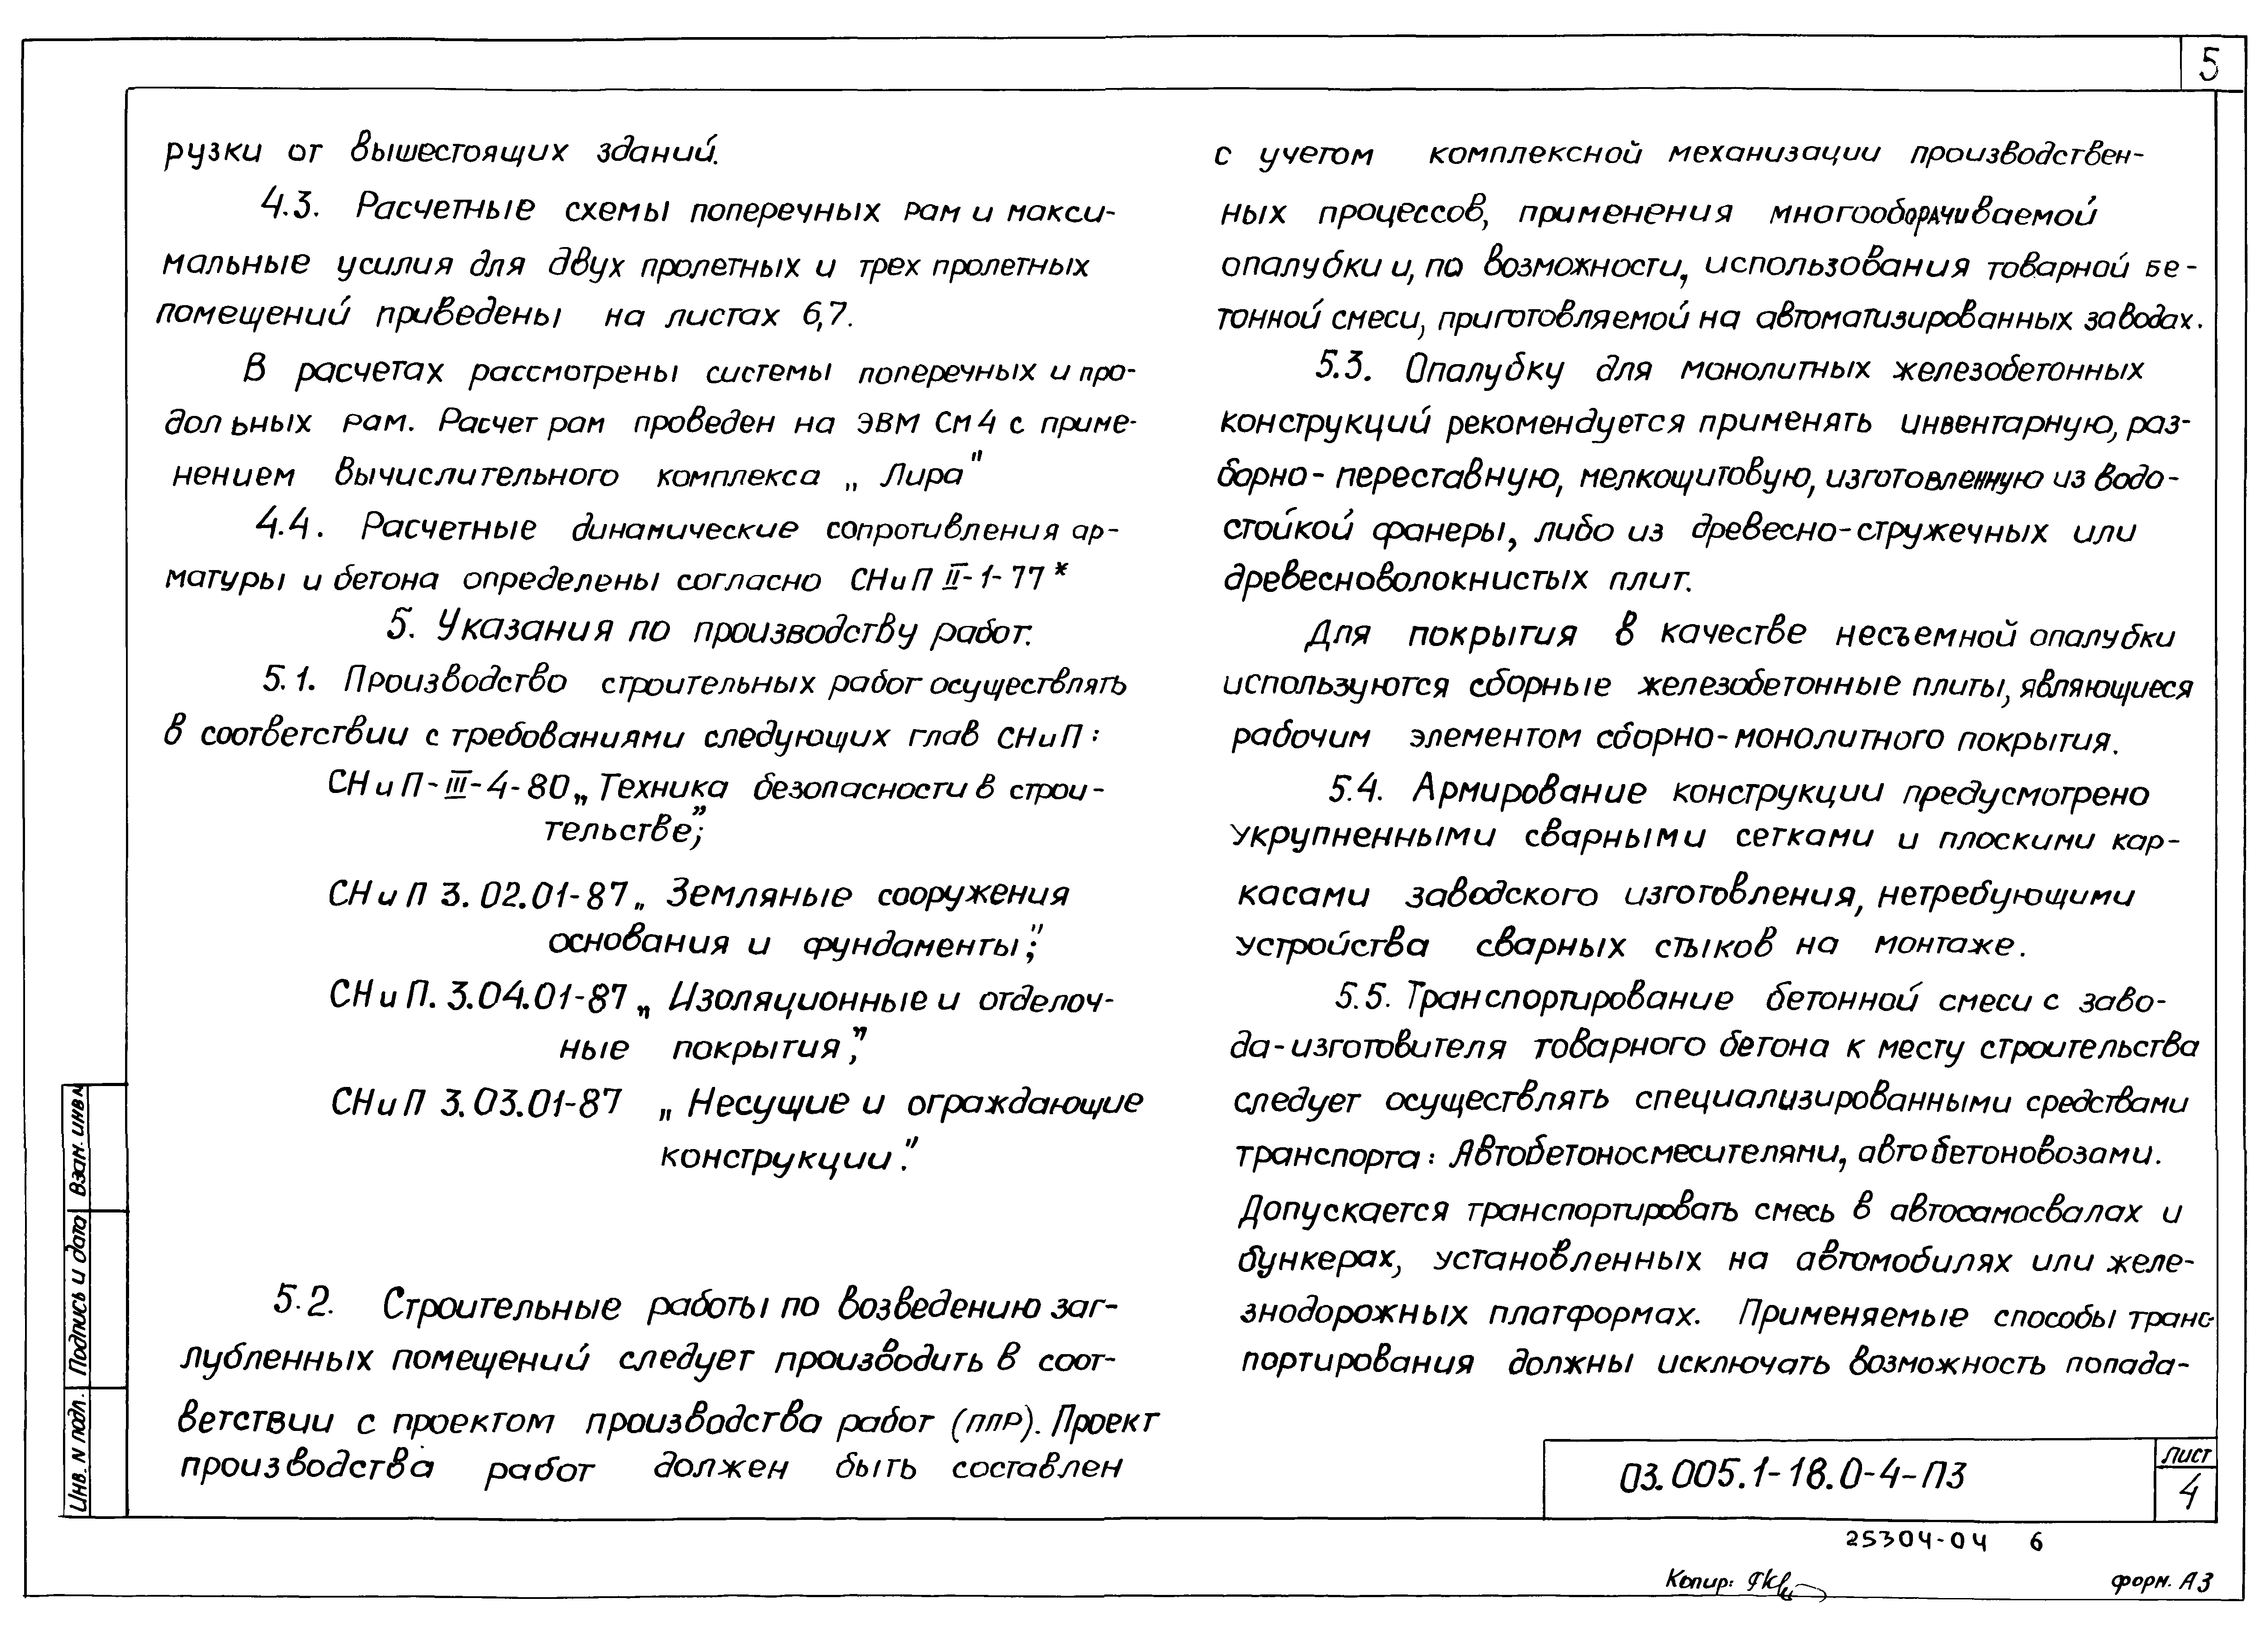 5
рузки от вышестоящих зданий.
4.3. Расчетные схемы поперечных рам и макси-
мальные усилия для двух пролетных и трех пролетных
помещений приведены на листах 6,7.
В расчетах рассмотрены системы поперечных и про-
дольных рам. Расчет рам проведен на ЭВМ СМ4 с приме-
нением вычислительного комплекса „Лира"
4.4. Расчетные динамические сопротивления ар-
матуры и бетона определены согласно СНиП II-1-77*
5. Указания по производству работ.
5.1. Производство строительных работ осуществлять
в соответствии с требованиями следующих глав СНиП:
СНиП-III-4-80 „Техника безопасности в строи-
тельстве";
СНиП 3.02.01-87 „Земляные сооружения
основания и фундаменты";
СНиП. 3.04.01-87 „Изоляционные и отделоч-
ные покрытия",
СНиП 3.03.01-87 „Несущие и ограждающие
конструкции".
5.2. Строительные работы по возведению заг-
лубленных помещений следует производить в соот-
ветствии с проектом производства работ (ППР). Проект
производства работ должен быть составлен
с учетом комплексной механизации производствен-
ных процессов, применения многооборачиваемой
опалубки и, по возможности, использования товарной бе-
тонной смеси, приготовляемой на автоматизированных заводах.
5.3. Опалубку для монолитных железобетонных
конструкций рекомендуется применять инвентарную, раз-
борно-переставную, мелкощитовую, изготовленную из водо-
стойкой фанеры, либо из древесно-стружечных или
древесноволокнистых плит.
Для покрытия в качестве несъемной опалубки
используются сборные железобетонные плиты, являющиеся
рабочим элементом сборно-монолитного покрытия.
5.4. Армирование конструкции предусмотрено
укрупненными сварными сетками и плоскими кар-
касами заводского изготовления, нетребующими
устройства сварных стыков на монтаже.
5.5. Транспортирование бетонной смеси с заво-
да-изготовителя товарного бетона к месту строительства
следует осуществлять специализированными средствами
транспорта: Автобетоносмесителями, автобетоновозами.
Допускается транспортировать смесь в автосамосвалах и
бункерах, установленных на автомобилях или желе-
знодорожных платформах. Применяемые способы транс-
портирования должны исключать возможность попада-
Взан. инв N
Подпись и дата
Инв. N подл.
03.005.1-18.0-4-ПЗ
Лист
4
25304-04 6
Копир:
форм. А3